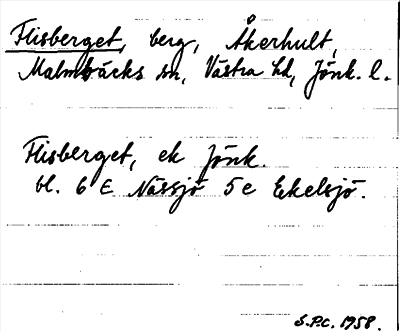 Flisberget, berg, Åkerhult,
Malmbäcks sn, Västra hd, Jönk. l.
Flisberget, ek Jönk.
bl. 6 E Nässjö 5 e Ekelsjö.
S.P.C. 1958.